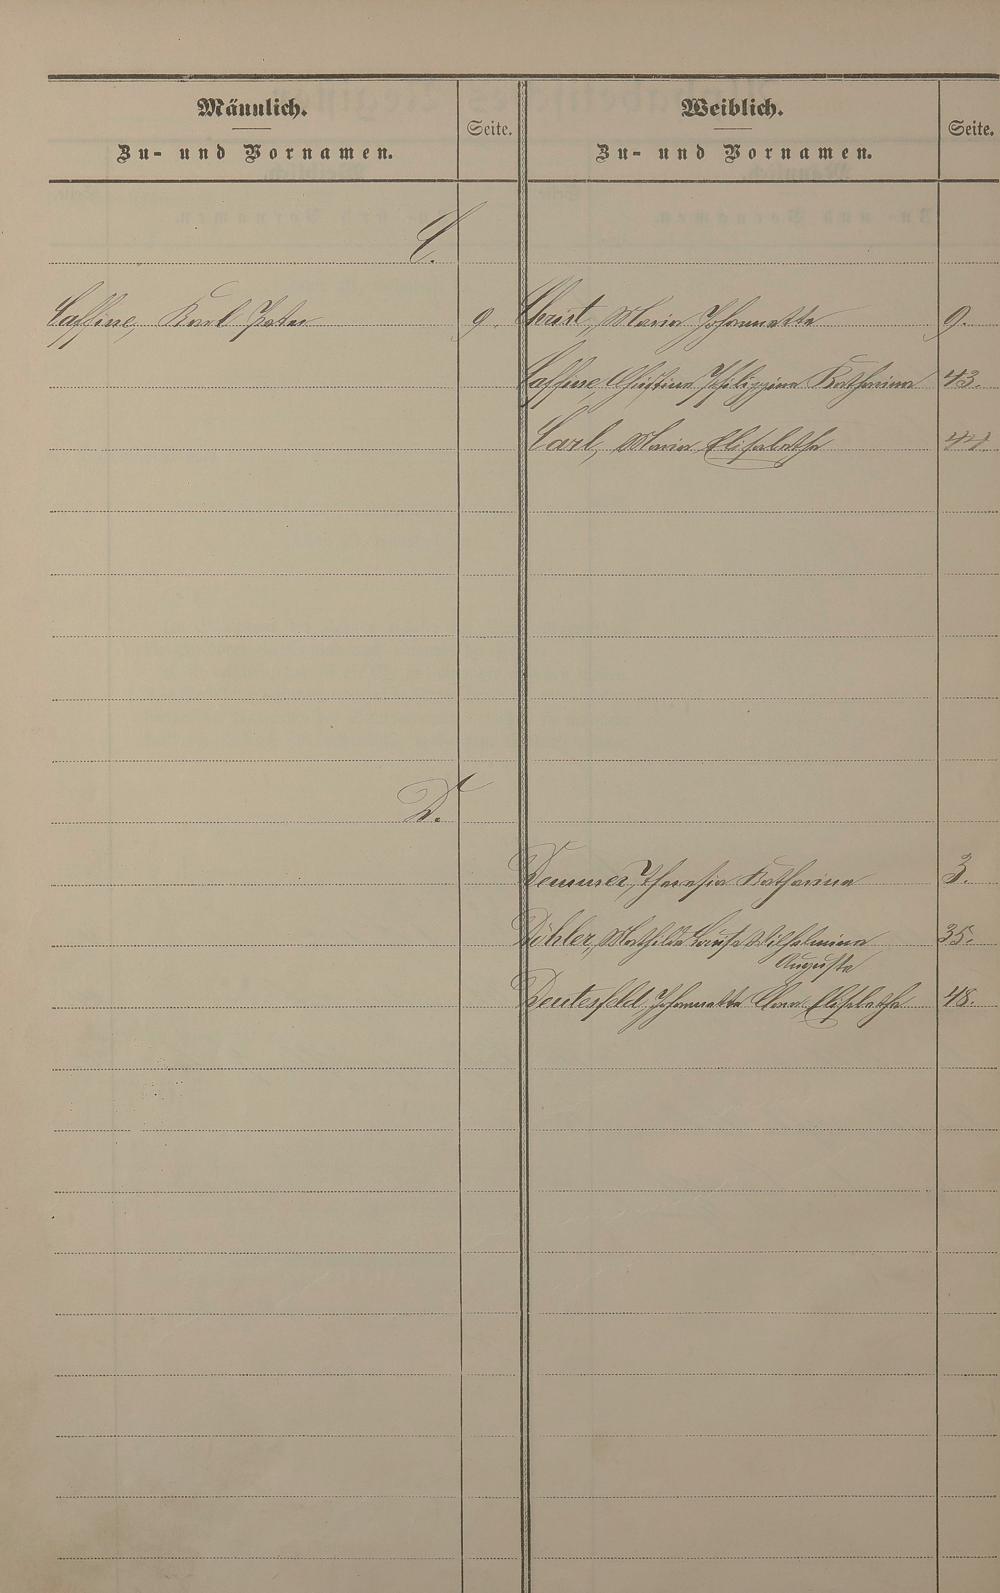 Männlich.
Zu- und Vornamen.
Seite.
Weiblich.
Zu- und Vornamen.
Seite.
C.
Caffine, Karl Peter 9.
Christ, Maria Johannette 9.
Caffine, Christine Philippina Katharina 43.
Carl, Maria Elisabetha 44.
D.
Demmer, Theresia Katharina 3.
Döhler, Mathilde Louise Wilhelmina 35.
Auguste
Deutesfeld, Johannette Elisabethe 48.